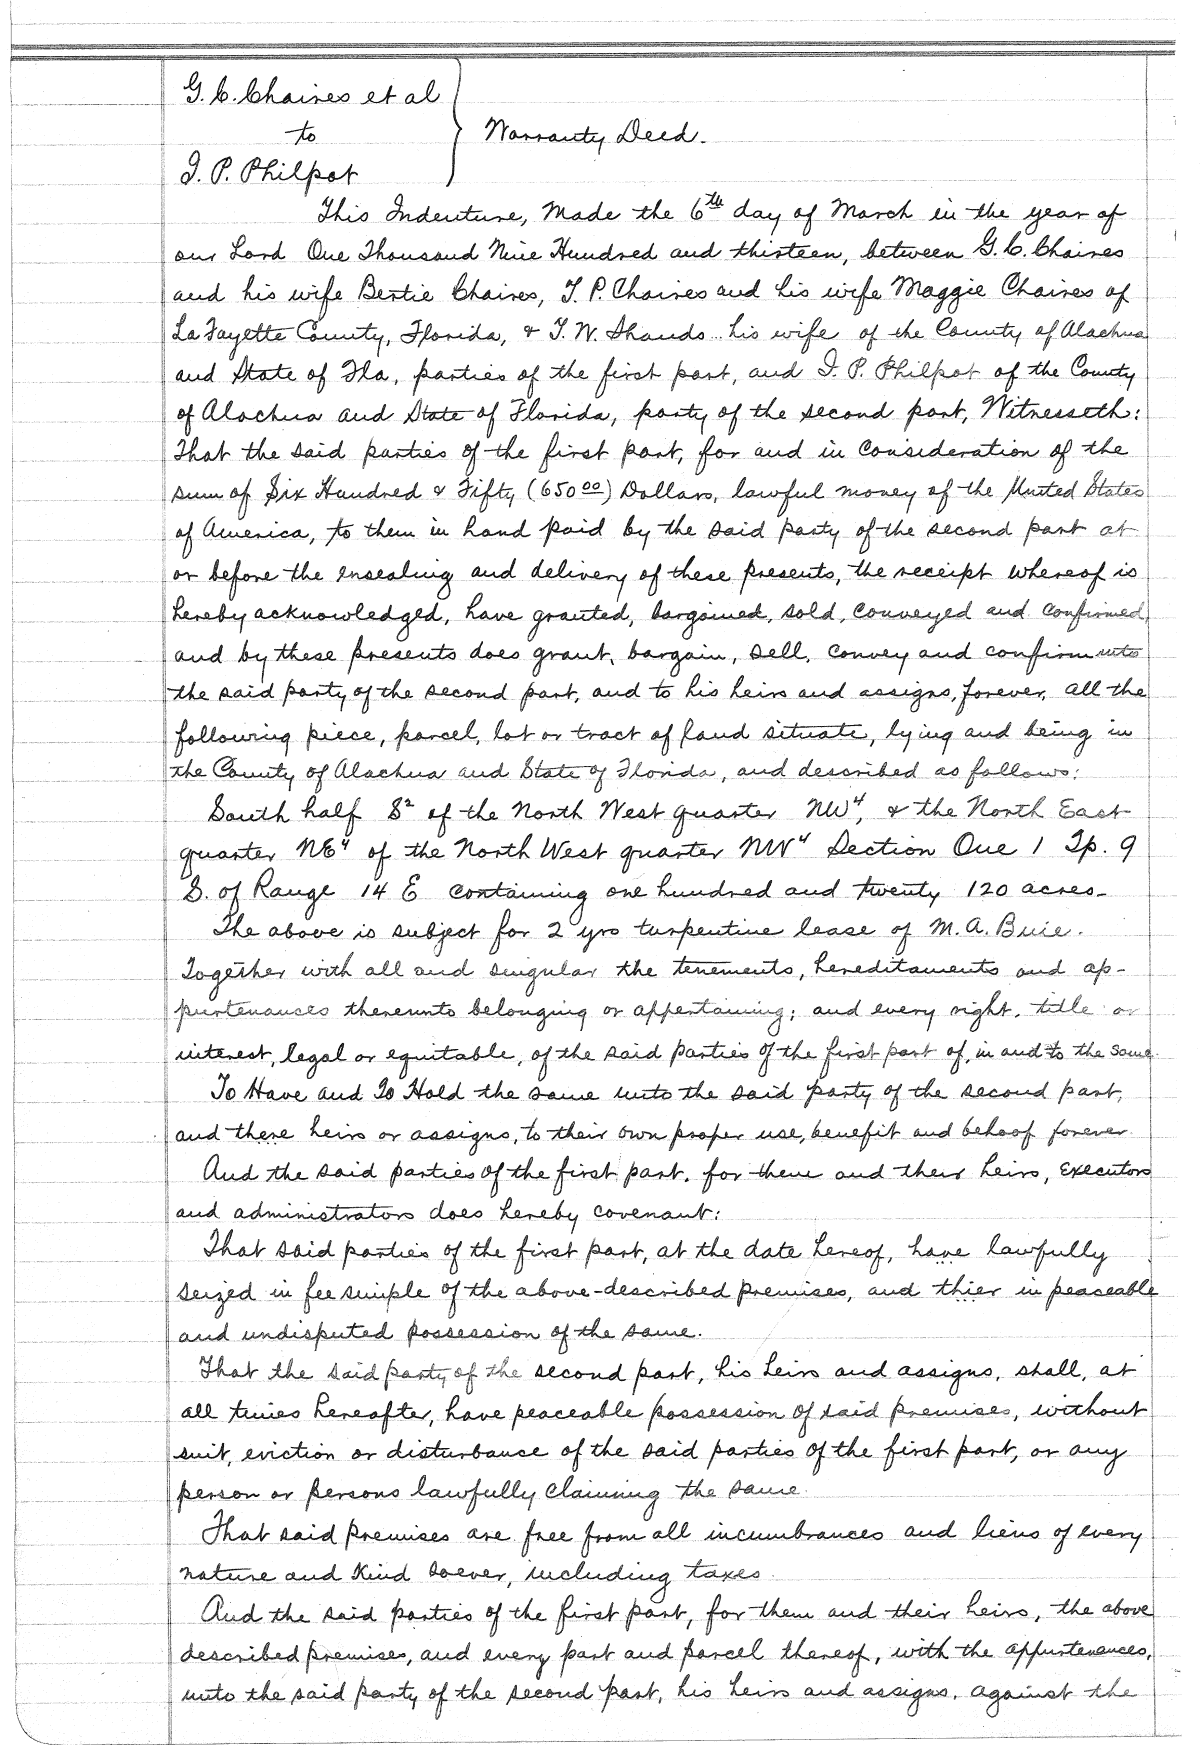 G. C. Chaires et al
to
Warranty Deed.
I. P. Philpot
This Indenture, Made the 6th day of March in the year of
our Lord One Thousand Nine Hundred and thirteen, between G. C. Chaires
and his wife Bertie Chaires, T. P. Chaires and his wife Maggie Chaires of
La Fayette County, Florida, & T. W. Shands his wife of the County of Alachua
and State of Fla, parties of the first part, and I. P. Philpot of the County
of Alachua and State of Florida, party of the second part, Witnesseth:
That the said parties of the first part, for and in consideration of the
sum of Six Hundred & Fifty (650 00) Dollars, lawful money of the United States
of America, to them in hand paid by the said party of the second part at
or before the ensealing and delivery of these presents, the receipt whereof is
hereby acknowledged, have granted, bargained, sold, conveyed and confirmed,
and by these presents does grant, bargain, sell, convey and confirm unto
the said party of the second part, and to his heirs and assigns, forever, all the
following piece, parcel, lot or tract of land situate, lying and being in
the County of Alachua and State of Florida, and described as follows:
South half S2 of the North West quarter NW4, & the North East
quarter NE4 of the North West quarter NW4 Section One 1 Tp. 9
S. of Range 14 E containing one hundred and twenty 120 acres-
The above is subject for 2 yrs turpentine lease of M. A. Buie.
Together with all and singular the tenements, hereditaments and ap-
purtenances thereunto belonging or appertaining; and every right, title or
interest, legal or equitable, of the said parties of the first part of, in and to the same.
To Have and To Hold the same unto the said party of the second part,
and there heirs or assigns, to their own proper use, benefit and behoof forever
And the said parties of the first part, for them and their heirs, executors
and administrators does hereby covenant:
That said parties of the first part, at the date hereof, have lawfully
seized in fee simple of the above-described premises, and thier in peaceable
and undisputed possession of the same.
That the said party of the second part, his heirs and assigns, shall, at
all times hereafter, have peaceable possession of said premises, without
suit, eviction or disturbance of the said parties of the first part, or any
person or persons lawfully claiming the same.
That said premises are free from all incumbrances and liens of every
nature and kind soever, including taxes.
And the said parties of the first part, for them and their heirs, the above
described premises, and every part and parcel thereof, with the appurtenances,
unto the said party of the second part, his heirs and assigns, against the